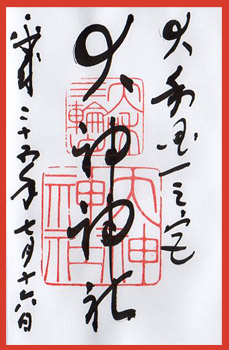 大和国一之宮
大神神社
平成二十五年七月十六日
三輪
大神
神社